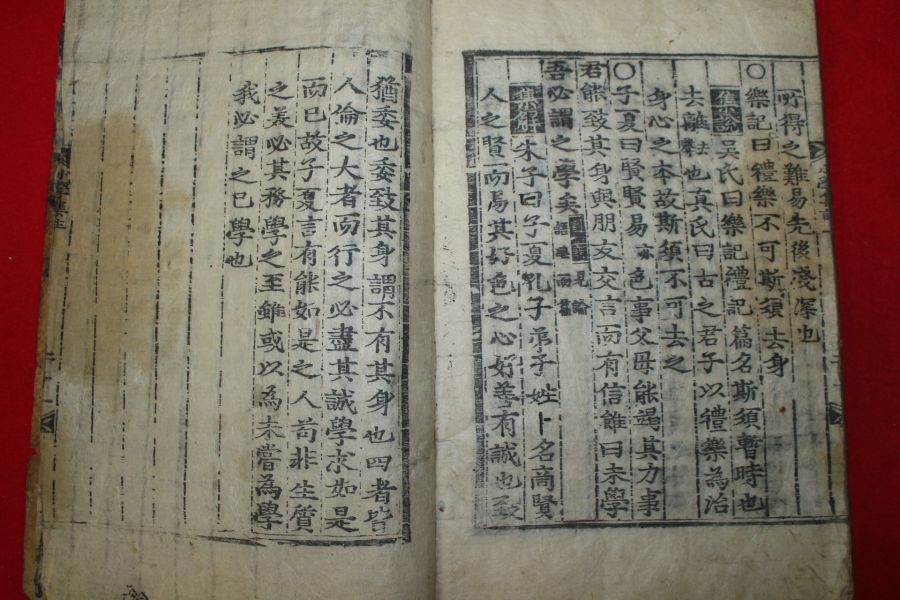 所得之難易先後淺深也
○樂記曰禮樂不可斯須去身
集解吳氏曰樂記禮記篇名斯須暫時也
去離去聲也真氏曰古之君子以禮樂為治
身心之本故斯須不可去之
○子夏曰賢賢易亦色事父母能竭其力事
君能致其身與朋友交言而有信雖曰未學
吾必謂之學矣見論語學而篇
集解朱子曰子夏孔子弟子姓卜名商賢
人之賢而易其好色之心好善有誠也致
猶委也委致其身謂不有其身也四者皆
人倫之大者而行之必盡其誠學求如是
而已故子夏言有能如是之人苟非生質
之美必其務學之至雖或以為未嘗為學
我必謂之已學也